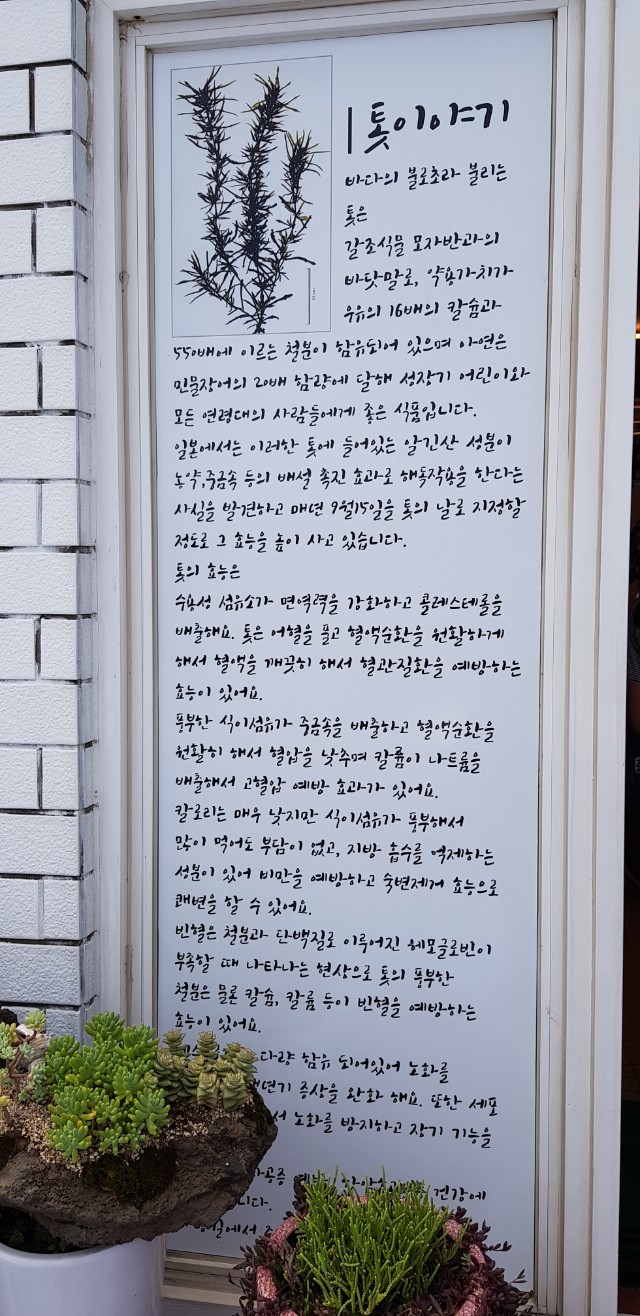 톳이야기
바다의 불로초라 불리는
톳은
갈조식물 모자반과의
바닷말로, 약용가치가
우유의 16배의 칼슘과
550배에 이르는 철분이 함유되어 있으며 아연은
민물장어의 20배 함량에 달해 성장기 어린이와
모든 연령대의 사람들에게 좋은 식품입니다.
일본에서는 이러한 톳에 들어있는 알긴산 성분이
농약,중금속 등의 배설 촉진 효과로 해독작용을 한다는
사실을 발견하고 매년 9월15일을 톳의 날로 지정할
정도로 그 효능을 높이 사고 있습니다.
톳의 효능은
수용성 섬유소가 면역력을 강화하고 콜레스테롤을
배출해요. 톳은 어혈을 풀고 혈액순환을 원활하게
해서 혈액을 깨끗히 해서 혈관질환을 예방하는
효능이 있어요.
풍부한 식이섬유가 중금속을 배출하고 혈액순환을
원활히 해서 혈압을 낮추며 칼륨이 나트륨을
배출해서 고혈압 예방 효과가 있어요.
칼로리는 매우 낮지만 식이섬유가 풍부해서
많이 먹어도 부담이 없고, 지방 흡수를 억제하는
성분이 있어 비만을 예방하고 숙변제거 효능으로
쾌변을 할 수 있어요.
빈혈은 철분과 단백질로 이루어진 헤모글로빈이
부족할 때 나타나는 현상으로 톳의 풍부한
철분은 물론 칼슘, 칼륨 등이 빈혈을 예방하는
효능이 있어요.
다량 함유 되어있어 노화를
증상을 완화 해요. 또한 세포
노화를 방지하고 장기 기능을
건강에